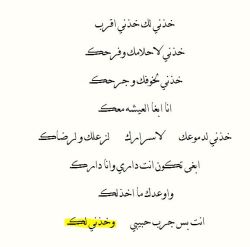 خذني لك خذني اقرب
خذني لاحلامك وفرحك
خذني لخوفك وجرحك
انا ابغا العيشه معك
خذني لدموعك لاسرارك لزعلك ولرضاك
ابغى تكون انت داري وانا دارك
واوعدك ما اخذلك
انت بس جرب حبيبي وخذني لك